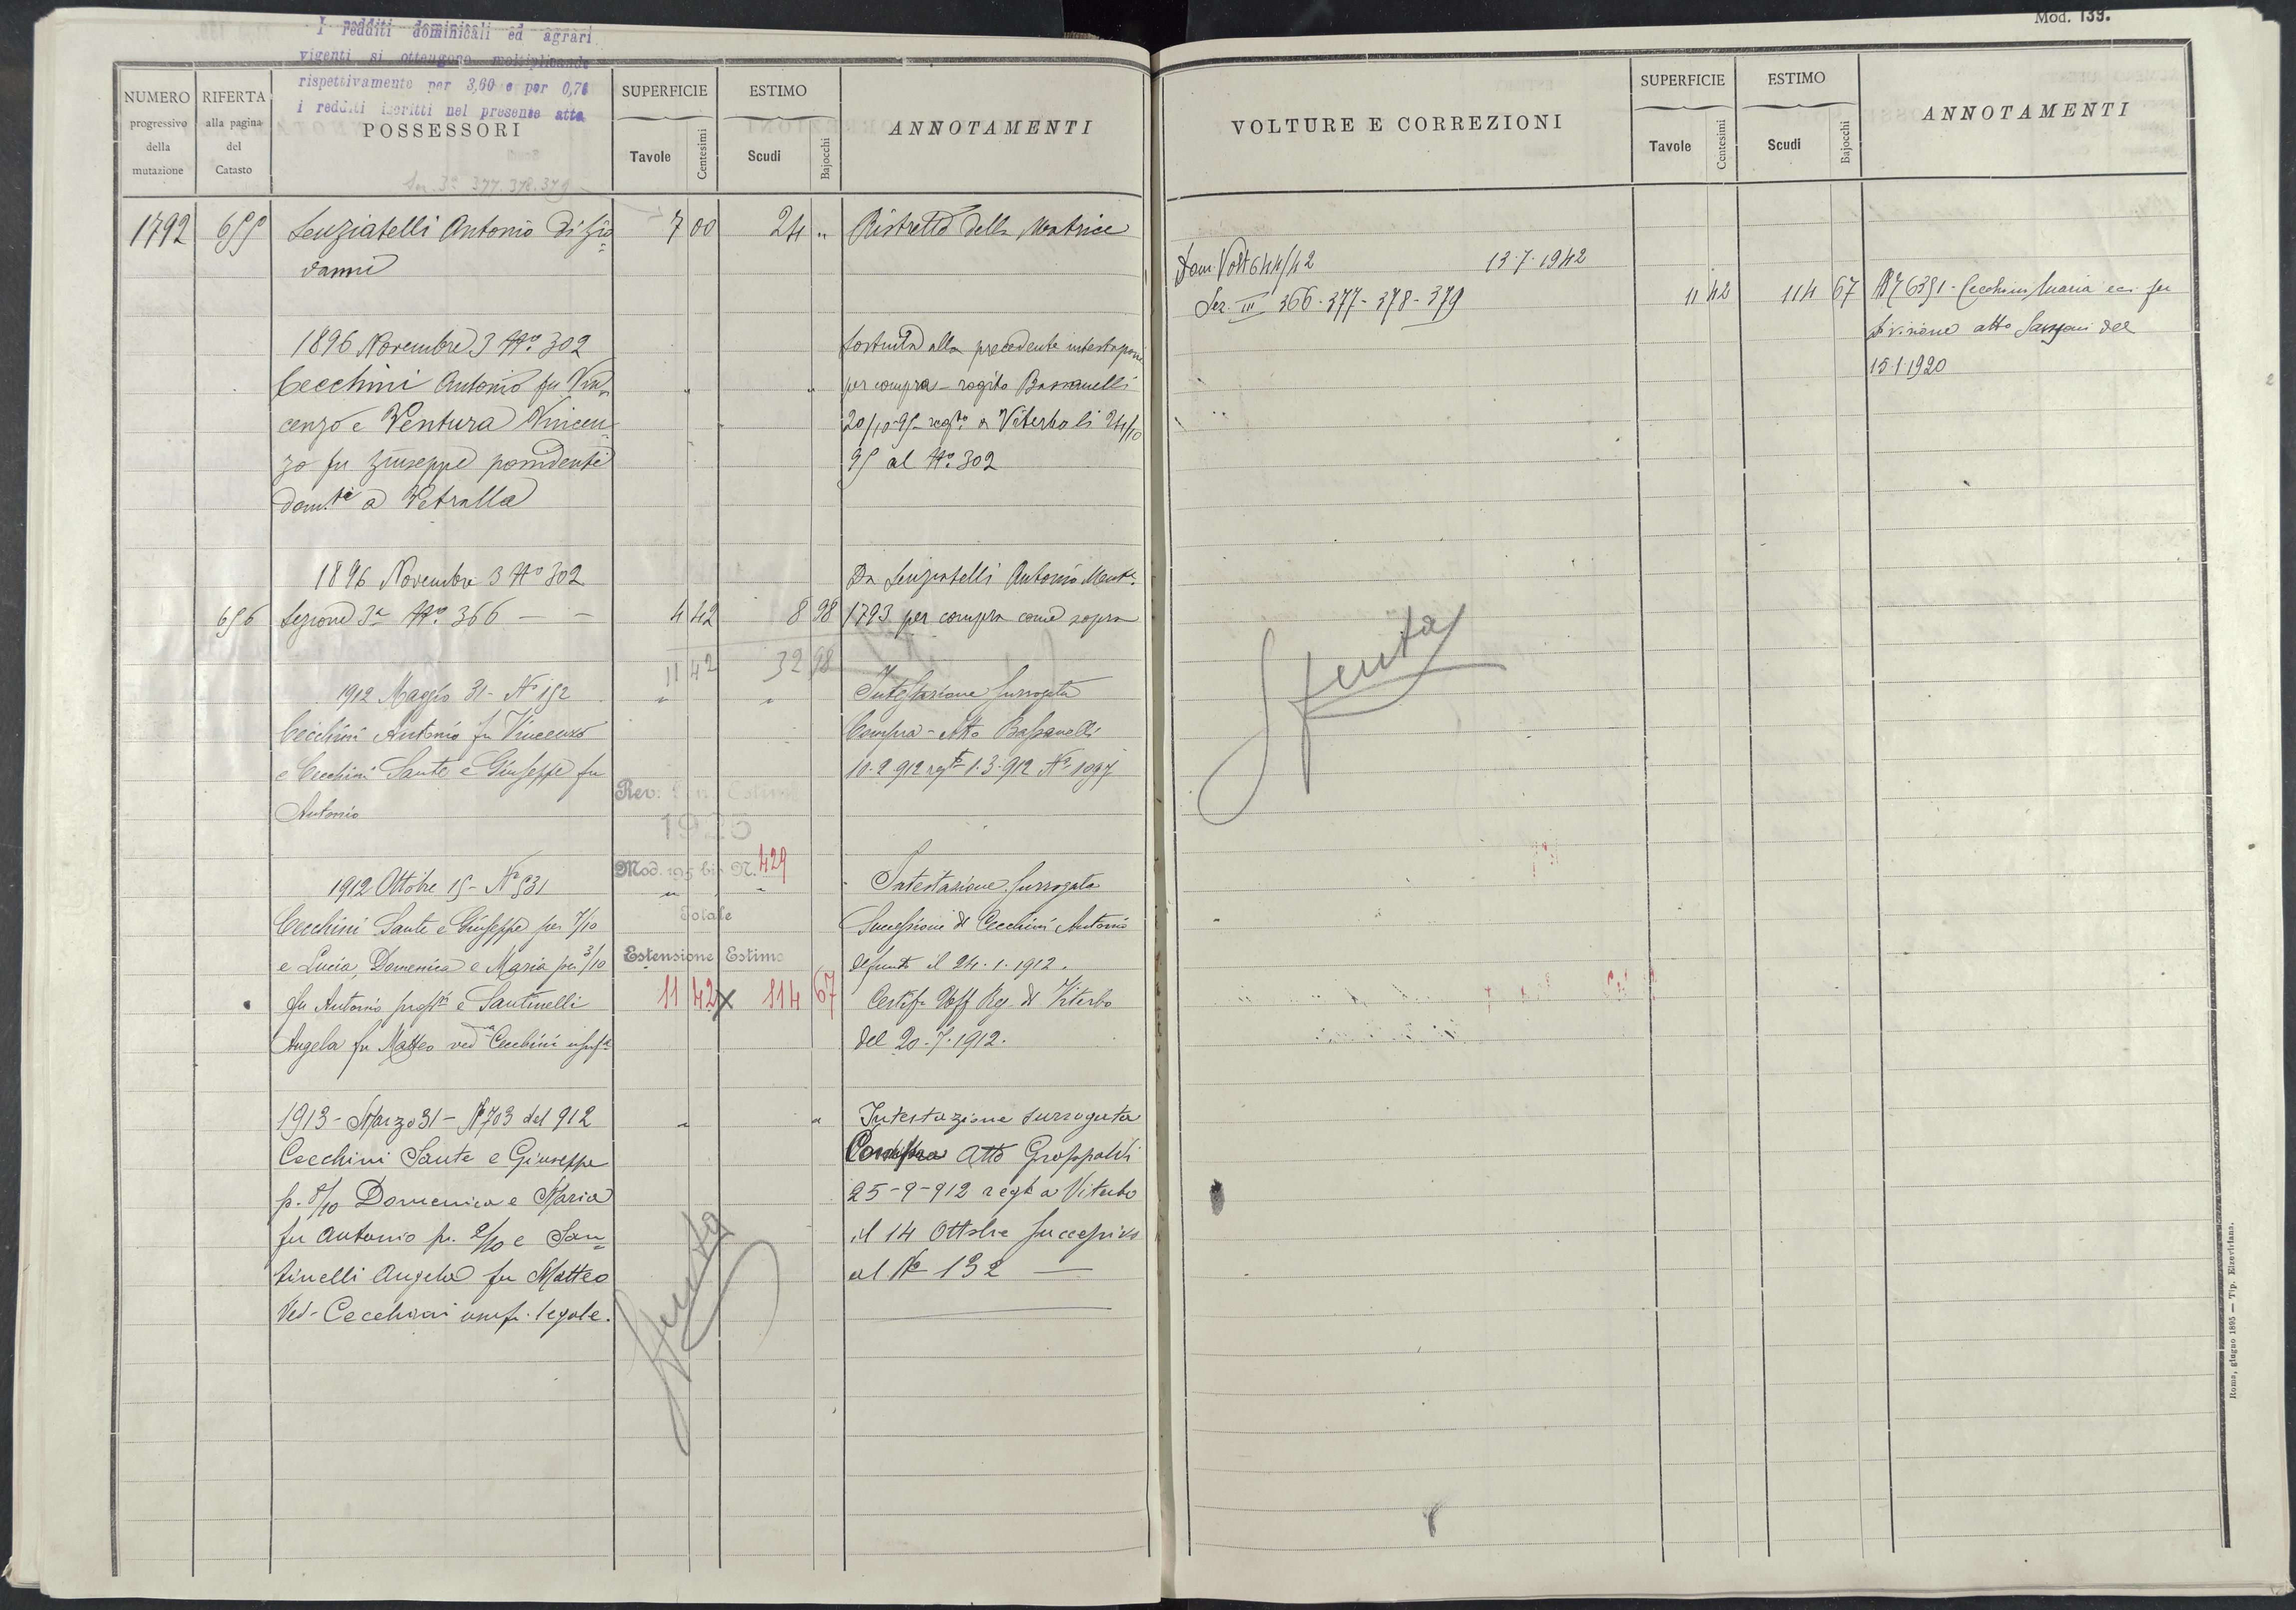 Mod. 139.
I redditi dominicali ed agrari
vigenti si ottengono moltiplicando
rispettivamente per 3,60 e per 0,76
i redditi iscritti nel presente atto
NUMERO
progressivo
della
mutazione
RIFERTA
alla pagina
del
Catasto
POSSESSORI
SUPERFICIE
Tavole
Centesimi
ESTIMO
Scudi
Bajocchi
ANNOTAMENTI
Sez. 3ª 377. 378. 379
1792 655 Senziatelli Antonio di Gio 7 00 24 " Ristretto della Matrice
vanni
1896 Novembre 3 Nº. 302 Sostituita alla precedente intestazione
Cecchini Antonio fu Vin " " per compra - rogito Bassanelli
cenzo e Ventura Vincen 20/10-95 - regto a Viterbo li 24/10
zo fu Giuseppe possidenti 95 al Nº. 302
domti a Vetralla
1896 Novembre 3 Nº 302 Da Senziatelli Antonio
656 Sezione 3ª Nº. 366 — — 4 42 8 98 1793 per compra come sopra
11 42 32 98
1912 Maggio 31 - Nº 152 " " Intestazione surrogata
Cecchini Antonio fu Vincenzo Compra - Atto Bassanelli
e Cecchini Sante e Giuseppe fu 10-2-912 regto 1.3.912 Nº 1997
Antonio
Rev. Estimo
1925
Mod. 195 bis N. 429
1912 Ottobre 15 - Nº 531 " " Intestazione surrogata
Totale
Cecchini Sante e Giuseppe per 7/10 Successione di Cecchini Antonio
e Lucia, Domenica e Maria per 3/10 Estensione Estimo defunto il 24.1.1912.
fu Antonio proprti e Santinelli 11 42 x 114 67 Certif. Uff Reg. di Viterbo
Angela fu Matteo veda Cecchini usufta del 20-7-1912.
1913 - Marzo 31 - Nº 703 del 912 " " Intestazione surrogata
Cecchini Sante e Giuseppe Compra Atto Groppaldi
p. 8/10 Domenica e Maria 25-9-912 regt a Viterbo
fu Antonio p. 2/10 e San il 14 Ottobre successivo
tinelli Angela fu Matteo al Nº 132 —
Ved. Cecchini usuf. legale.
Spenta
VOLTURE E CORREZIONI
SUPERFICIE
Tavole
Centesimi
ESTIMO
Scudi
Bajocchi
ANNOTAMENTI
Dom. Volt 644/42 13-7-1942
Sez. III 366-377-378-379 11 42 114 67 6391 - Cecchini Maria ecc. per
divisione atto del
15-1-1920
Spenta
Roma, giugno 1895 — Tip. Elzeviriana.